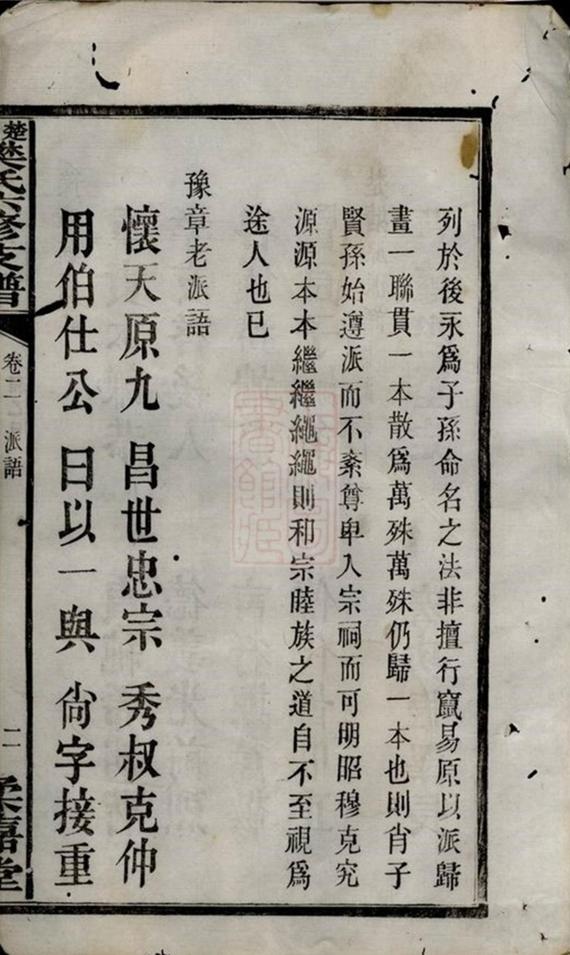 列於後永為子孫命名之法非擅行竄易原以派歸
畫一聯貫一本散為萬殊萬殊仍歸一本也則肖子
賢孫始遵派而不紊尊卑入宗祠而可明昭穆克究
源源本本繼繼繩繩則和宗睦族之道自不至視為
途人也已
豫章老派語
懷天原九 昌世忠宗 秀叔克仲
用伯仕公 曰以一與 尙字接重
卷二 派語
二